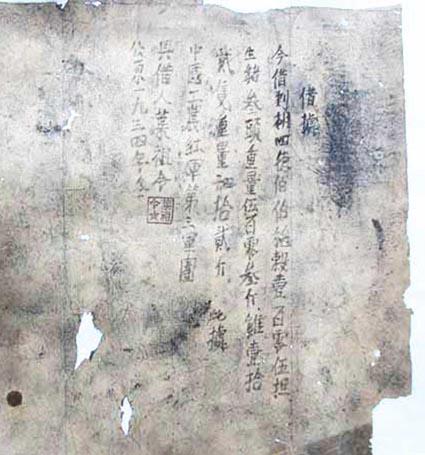 借據
今借到胡四德伯伯稻榖壹百零伍担
生豬叁頭重量伍百零叁斤,雞壹拾
貳隻重量
拾貳斤。此據
中國工農紅軍第三軍團
具借人葉祖令
公元一九三四年冬